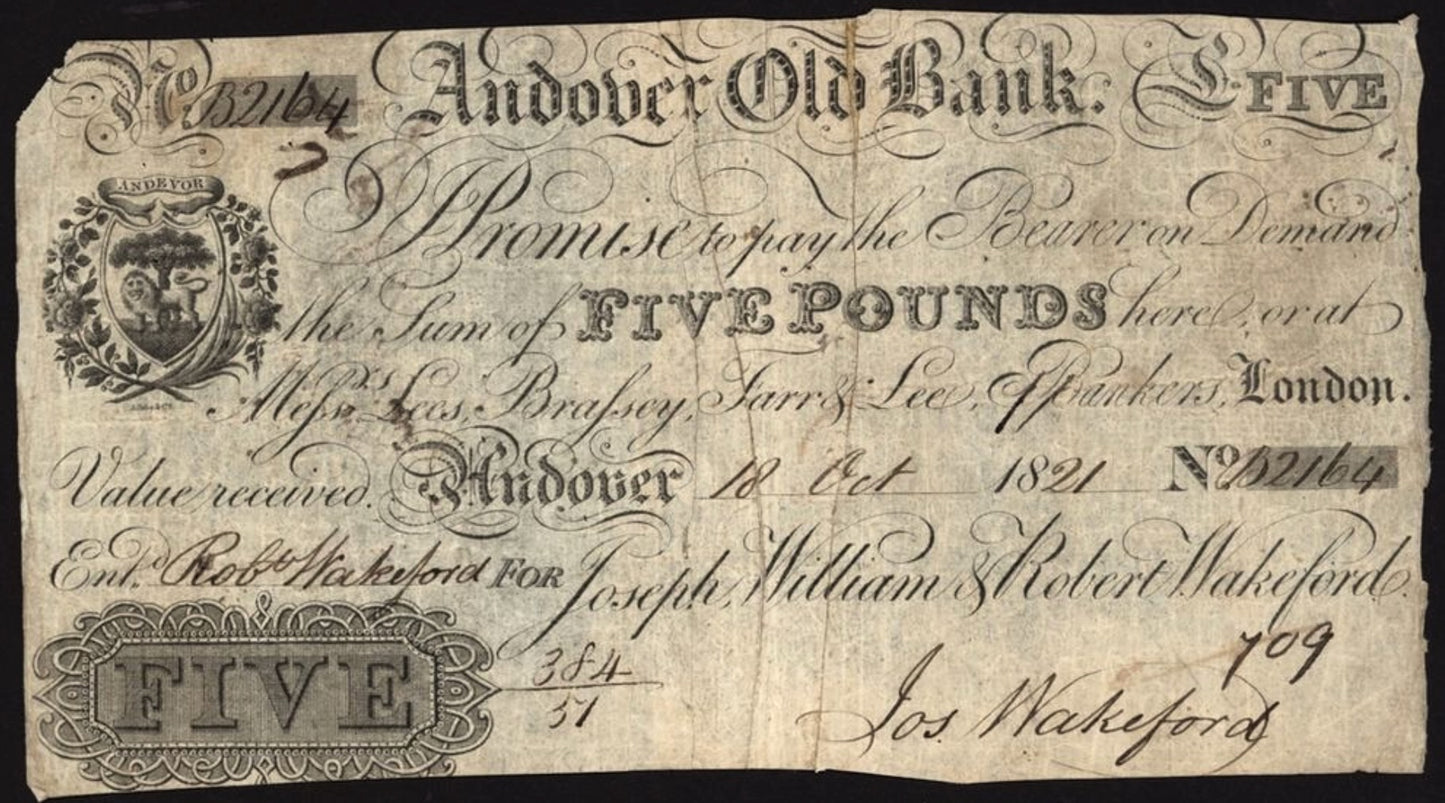 No B2164 Andover Old Bank. £ FIVE
ANDEVOR
I Promise to pay the Bearer on Demand
the Sum of FIVE POUNDS here, or at
Messrs. Lees, Brassey, Farr & Lee, Bankers, London.
Value received. Andover 18 Oct 1821 No B2164
Entd. Robt Wakeford FOR Joseph, William & Robert Wakeford.
709
FIVE 384
51
Jos. Wakeford